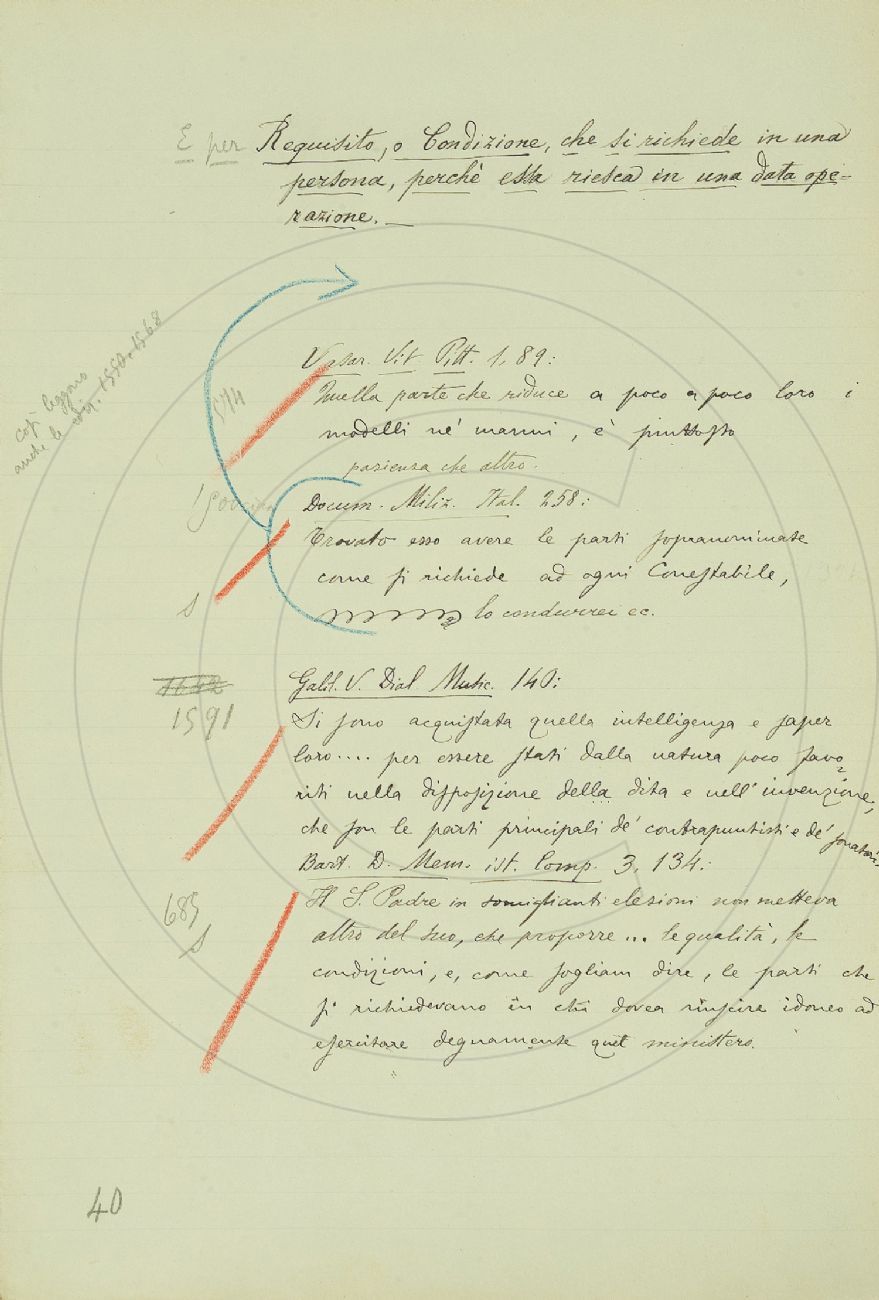 E per Requisito, o Condizione, che si richiede in una
persona, perchè essa riesca in una data ope-
razione. —
Vasar. Vit. Pitt. 1, 89:
Quella parte che riduce a poco a poco loro i
modelli ne' marmi, è piuttosto
pazienza che altro.
così leggono
anche le ediz. 1550. 1568
574
Docum. Miliz. Ital. 258:
1500
Trovato esso avere le parti sopranominate
come si richiede ad ogni Conestabile,
S
lo condurrei ec.
Galil. V. Dial. Mus. 140:
1591
Si sono acquistata quella intelligenza e saper
loro.... per essere stati dalla natura poco favo-
riti nella disposizione della dita e nell'invenzione,
che son le parti principali de' contrapuntisti e de' sonatori.
Bart. D. Mem. ist. Comp. 3, 134:
685
S
Il S. Padre in somiglianti elezioni non metteva
altro del suo, che proporre... le qualità, le
condizioni, e, come sogliam dire, le parti che
si richiedevano in chi dovea riuscire idoneo ad
esercitare degnamente quel ministero.
40